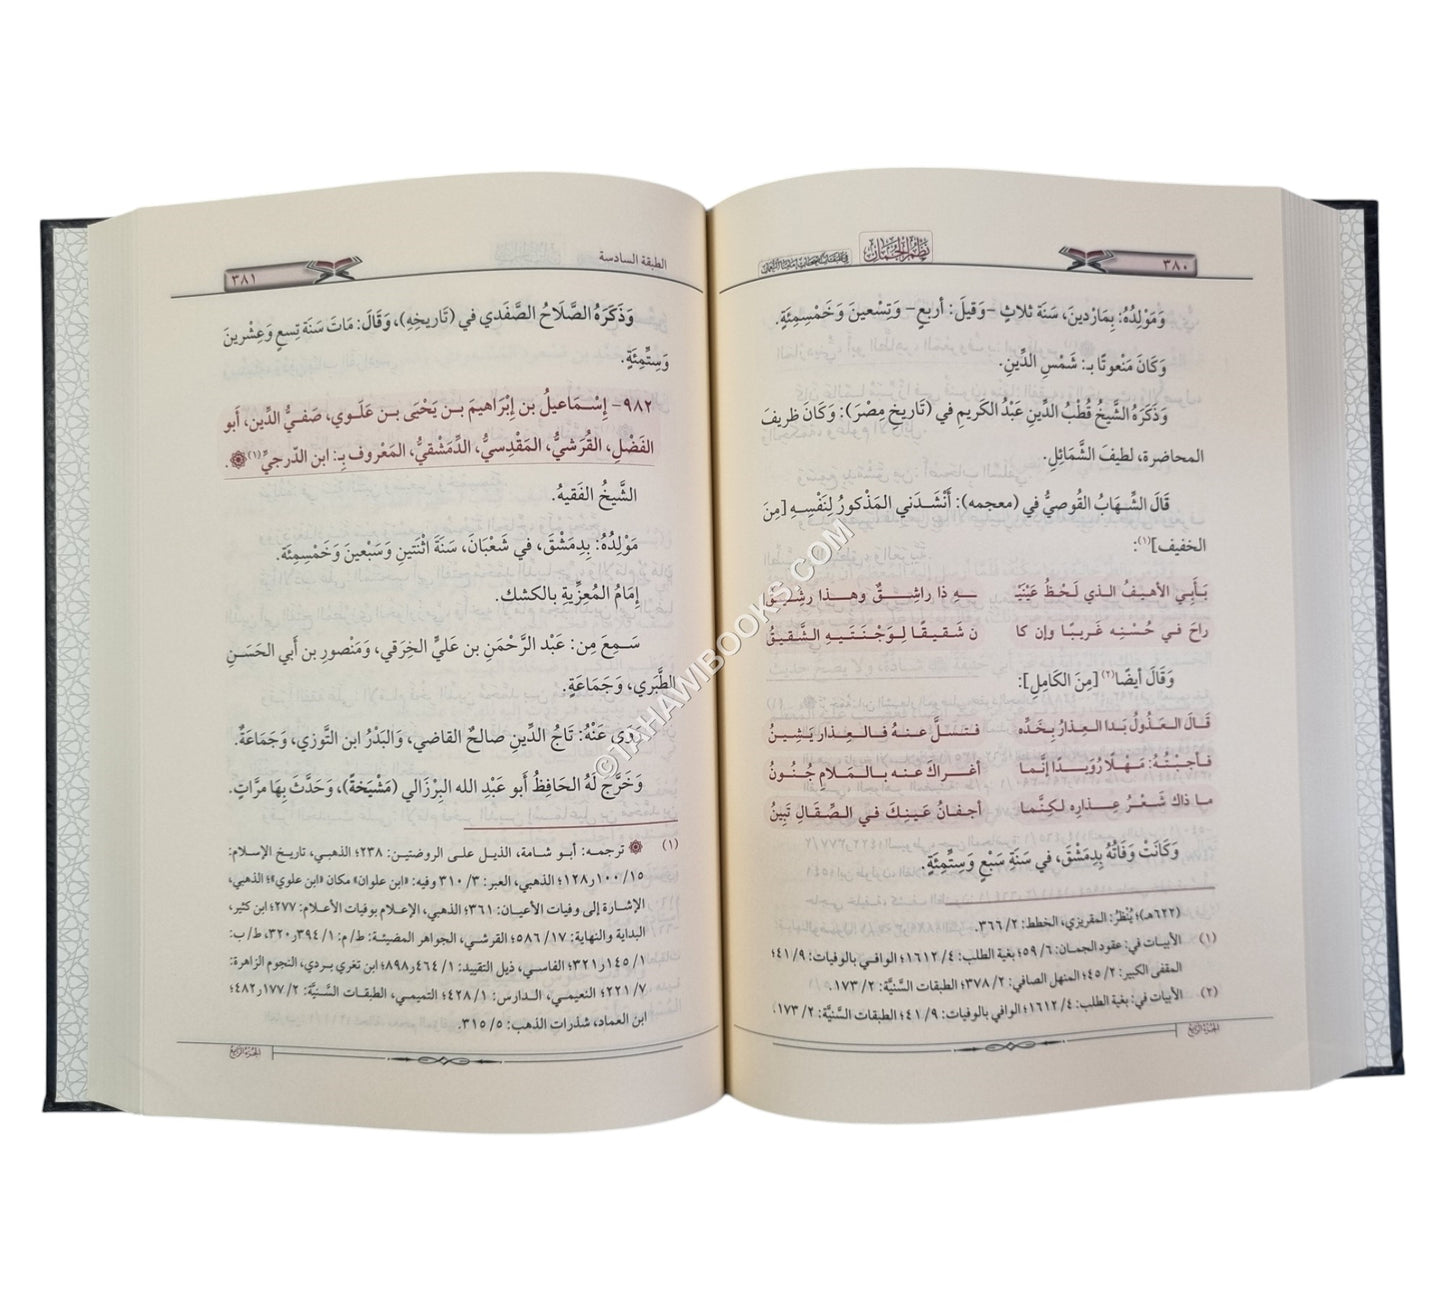 ٣٨٠
نظم الجمان
وَمَوْلِدُهُ: بِمَارْدينَ، سَنَة ثلاثٍ -وَقيلَ: أربعٍ- وَتِسْعينَ وَخَمْسِمِئَةٍ.
وَكَانَ مَنْعوتًا بـ: شَمْسِ الدِّينِ.
وَذَكَرَهُ الشَّيخُ قُطْبُ الدِّينِ عَبْدُ الكَريمِ في (تَاريخِ مِصْرَ): وَكَانَ ظريفَ
المحاضرة، لطيفَ الشَّمَائِلِ.
قَالَ الشِّهَابُ القُوصيُّ في (معجمه): أَنْشَدَني المَذْكورُ لِنَفْسِهِ [مِنَ
الخفيف](١):
بَـأَبِي الأهيفُ الـذي لَـحْـظُ عَيْنَيْـ ـهِ ذا راشِـقٌ وهـذا رشيقُ
راحَ في حُسْنِه غَريبًا وإن كا ن شَقيقًا لِـوَجْنَتَيهِ الشَّقيقُ
وَقَالَ أيضًا(٢) [مِنَ الكَامِلِ]:
قَالَ العَذُولُ بَدا العِذارُ بِخَدِّه فتسلَّ عنهُ فالعِذار يَشِينُ
فأجبْتُهُ: مَهْلًا رُوَيدًا إنَّما أغراكَ عنه بالمَلامِ جُنُونُ
ما ذاك شَعْرُ عِذارِه لكِنَّما أجفانُ عَينِكَ في الصِّقَالِ تَبِينُ
وَكَانَتْ وَفَاتُهُ بِدِمَشْقَ، في سَنَةِ سَبْعٍ وَسِتِّمِئَةٍ.
(٦٢٢هـ)؛ يُنْظَرُ: المقريزي، الخطط: ٢/ ٣٦٦.
(١) الأبيات في: عقود الجمان: ٦/ ٥٩؛ بغية الطلب: ٤/ ١٦١٢؛ الوافي بالوفيات: ٩/ ٤١؛
المقفى الكبير: ٢/ ٤٥؛ المنهل الصافي: ٢/ ٣٧٨؛ الطبقات السَّنيَّة: ٢/ ١٧٣.
(٢) الأبيات في: بغية الطلب: ٤/ ١٦١٢؛ الوافي بالوفيات: ٩/ ٤١؛ الطبقات السَّنيَّة: ٢/ ١٧٣.
الجزء الرابع
الطبقة السادسة
٣٨١
وَذَكَرَهُ الصَّلَاحُ الصَّفَدي في (تَاريخِهِ)، وَقَالَ: مَاتَ سَنَة تِسعٍ وَعِشْرينَ
وَسِتِّمِئَةٍ.
٩٨٢- إِسْمَاعيلُ بن إِبْرَاهيمَ بن يَحْيَى بن عَلَوي، صَفيُّ الدِّين، أَبو
الفَضْلِ، القُرَشيُّ، المَقْدِسيُّ، الدِّمَشْقيُّ، المَعْروف بـ: ابن الدّرجيّ(١).
الشَّيخُ الفَقيهُ.
مَوْلِدُهُ: بِدِمَشْقَ، في شَعْبَانَ، سَنَةَ اثْنَتينِ وَسَبْعينَ وَخَمْسِمِئَة.
إِمَامُ المُعِزِّيةِ بالكشك.
سَـمِعَ مِن: عَبْد الرَّحْمَنِ بن عَليٍّ الخِرَقي، وَمَنْصورِ بن أَبي الحَسَنِ
الطَّبَري، وَجَمَاعَةٍ.
رَوَى عَنْهُ: تَاجُ الدِّينِ صالحٌ القاضي، وَالبَدْرُ ابن التَّوزي، وَجَمَاعَةٌ.
وَخَرَّجَ لَهُ الحَافِظُ أَبو عَبْدِ الله البِرْزَالي (مَشْيَخةً)، وَحَدَّثَ بِهَا مرَّاتٍ.
(١) ترجمه: أبو شامة، الذيل على الروضتين: ٢٣٨؛ الذهبي، تاريخ الإسلام:
١٥/ ١٠٠ر١٢٨؛ الذهبي، العبر: ٣/ ٣١٠ وفيه: «ابن علوان» مكان «ابن علوي»؛ الذهبي،
الإشارة إلى وفيات الأعيان: ٣٦١؛ الذهبي، الإعلام بوفيات الأعلام: ٢٧٧؛ ابن كثير،
البداية والنهاية: ١٧/ ٥٨٦؛ القرشي، الجواهر المضيئة: ط/م: ١/ ٣٩٤ر٣٢٠، ط/ب:
١/ ١٤٥ر٣٢١؛ الفاسي، ذيل التقييد: ١/ ٤٦٤ر٨٩٨؛ ابن تغري بردي، النجوم الزاهرة:
٧/ ٢٢١؛ النعيمي، الدارس: ١/ ٤٢٨؛ التميمي، الطبقات السَّنيَّة: ٢/ ١٧٧ر٤٨٢؛
ابن العماد، شذرات الذهب: ٥/ ٣١٥.
الجزء الرابع
©TAHAWIBOOKS.COM